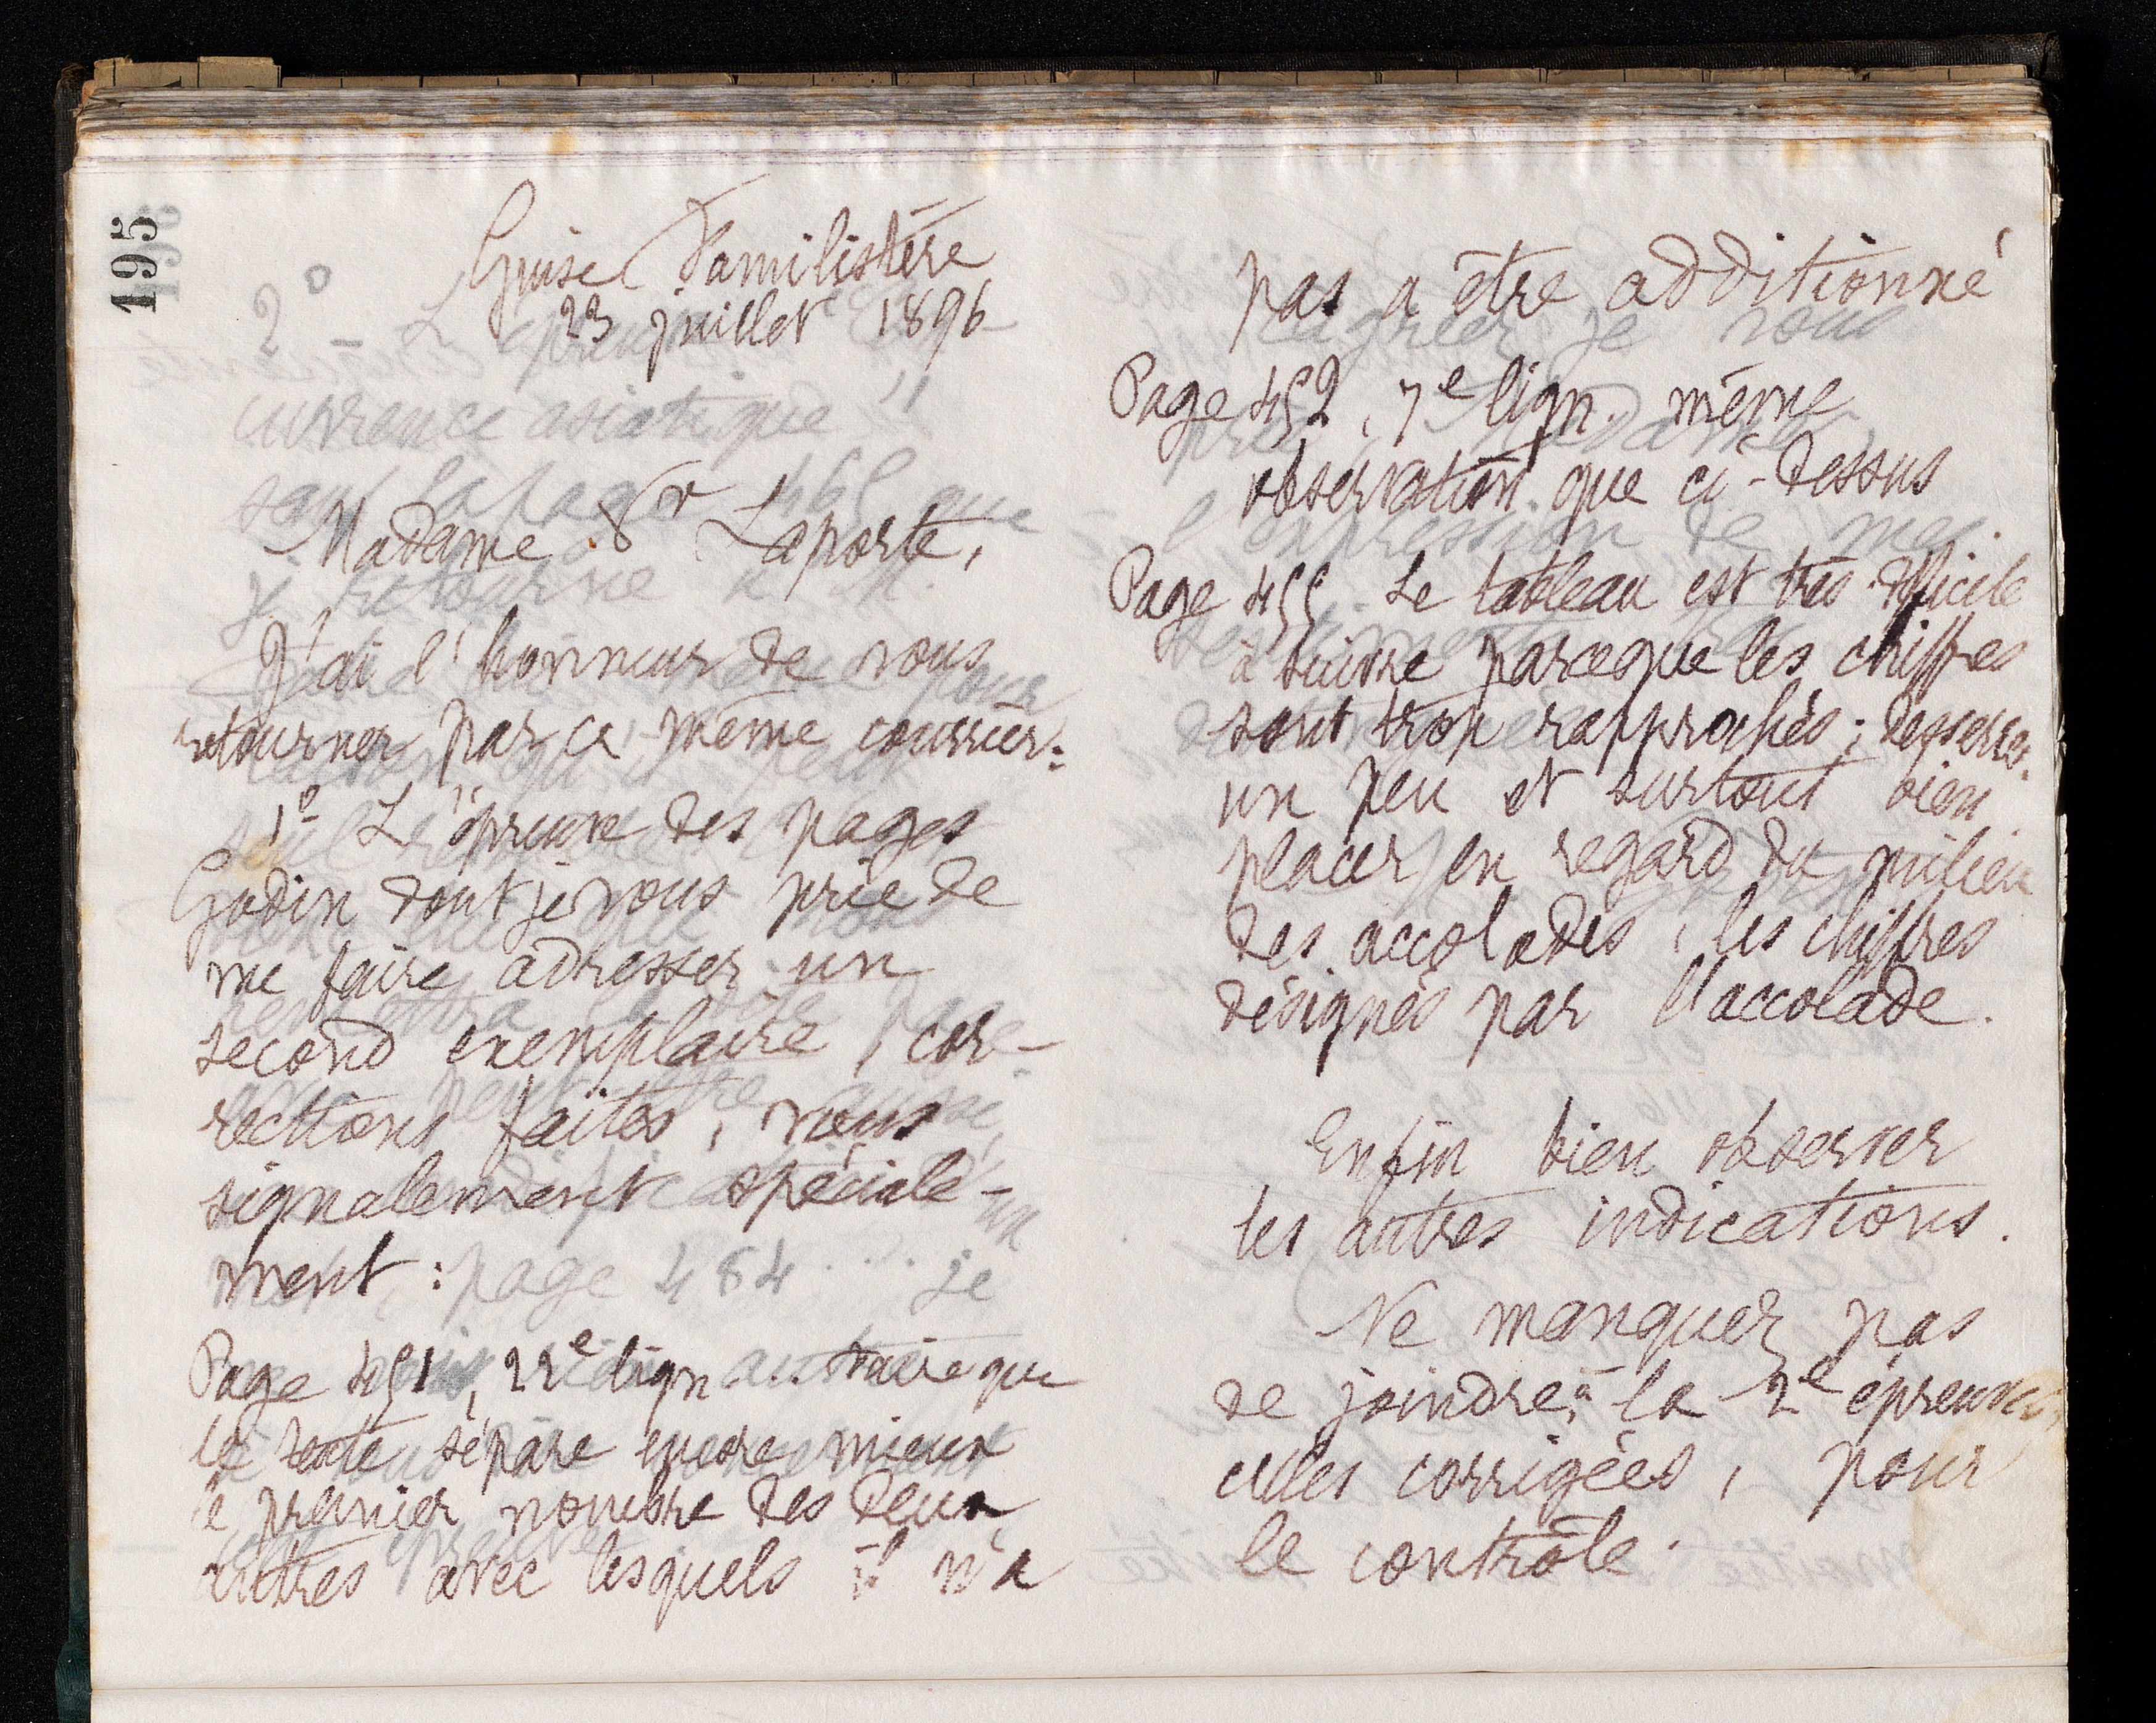 195
Guise Familistère
23 juillet 1896
Madame Vr Laporte,
J'ai l'honneur de vous
retourner par ce même courrier:
1° L'épreuve des pages
Godin dont je vous prie de
me faire adresser un
second exemplaire, cor-
rections faites, vous
signalement spéciale-
ment:
Page 451, 22e lign faire que
le texte sépare encore mieux
le premier nombre des deux
autres avec lesquels il n'a
pas a être additionné
Page 452, 7e lign. même
observation que ci-dessus
Page 455 Le tableau est très difficile
à suivre parceque les chiffres
sont trop rapprochés; desserrer
un peu et surtout bien
placer en regard du milieu
des accolades, les chiffres
désignés par l'accolade.
Enfin bien observer
les autres indications.
Ne manquer pas
de joindre à la 2e épreuve,
celles corrigées, pour
le contrôle.